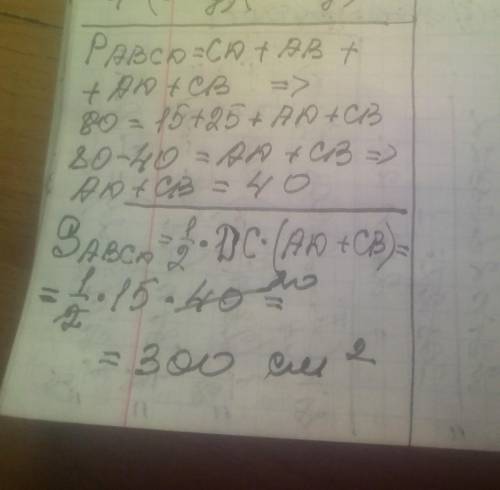 P ABCD = CD + AB +
+ AD + CB =>
80 = 15+25 + AD + CB
80-40 = AD + CB =>
AD + CB = 40
S ABCD = 1/2 · DC · (AD + CB) =
= 1/2 · 15 · 40 20 =
= 300 см²